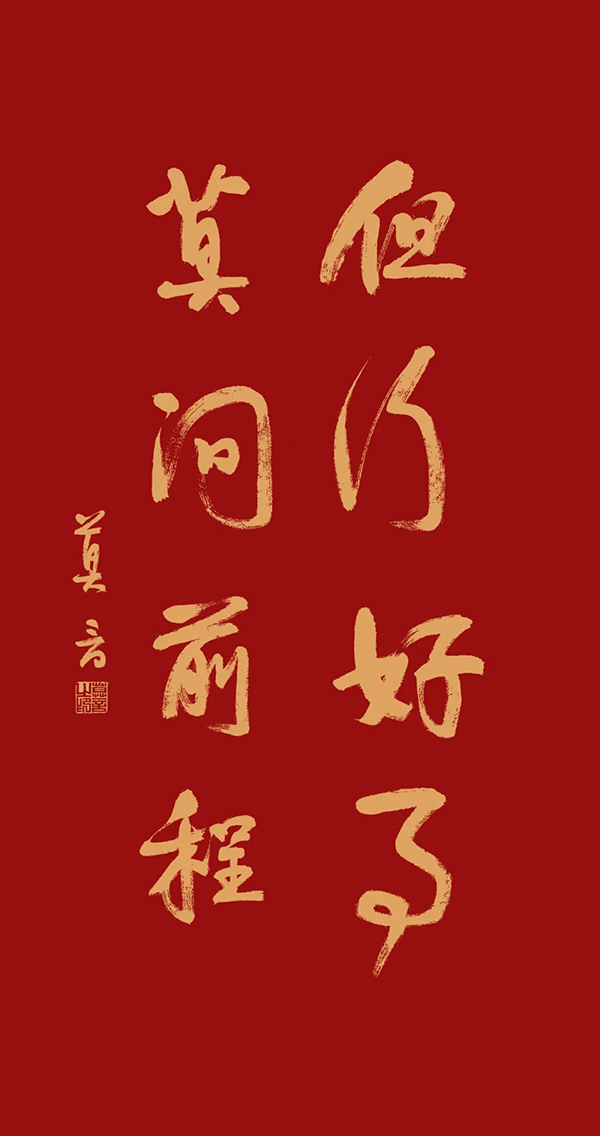 但行好事
莫问前程
莫言